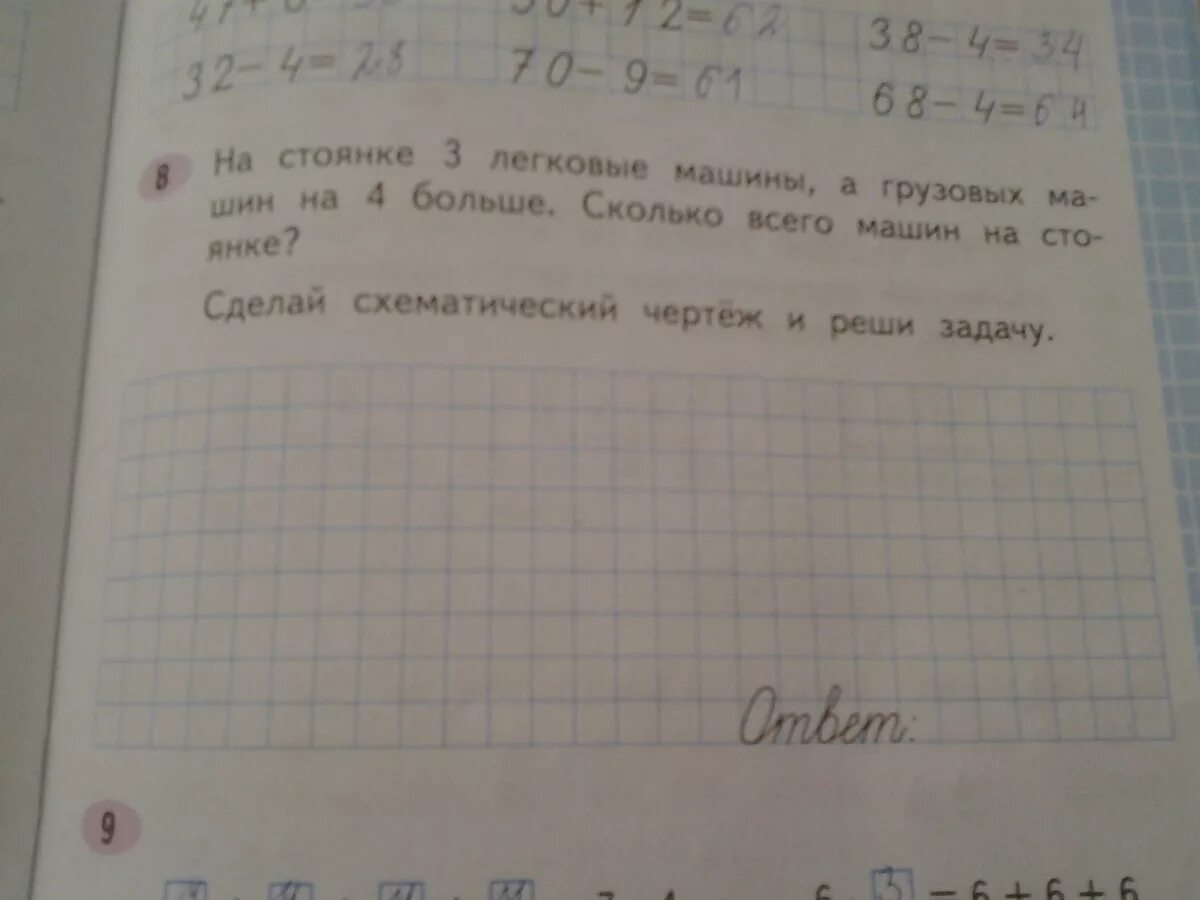 30+12=62
38-4=34
32-4=28
70-9=61
68-4=64
8 На стоянке 3 легковые машины, а грузовых ма-
шин на 4 больше. Сколько всего машин на сто-
янке?
Сделай схематический чертёж и реши задачу.
Ответ:
9
3 = 6+6+6